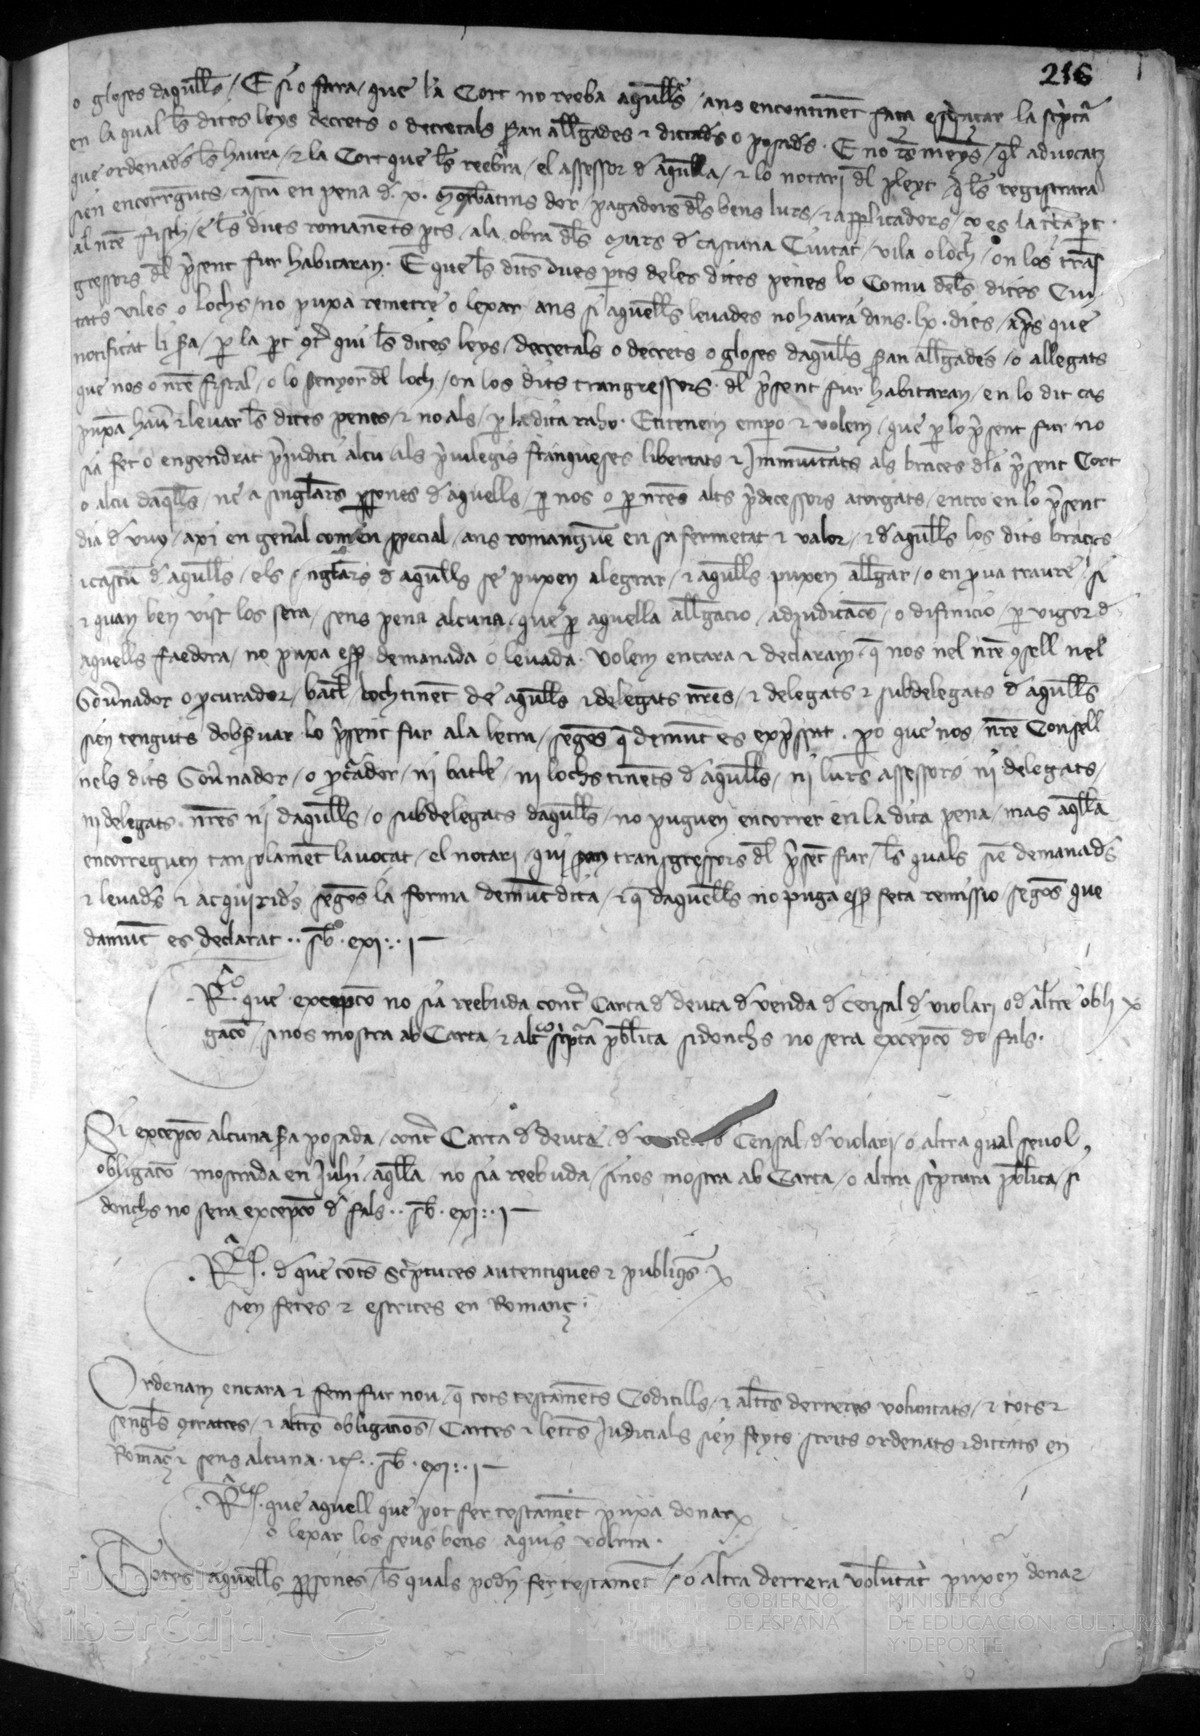 216
o gloses daq̃lls / E si o fara / que la Cort no reeba aq̃lls / ans encontinẽt faça esq̃nçar la scⁱptã
en la qual l̃s dites leys decrets o decretals ẜan all̃gades ⁊ dictadẽs o posadẽs · E no r̃s meyns / q̃l advocat
que ordenadẽs l̃s haura / ⁊ la Cort que l̃s reebra / el assessor d aq̃lla / ⁊ lo notari dl̃ pleyt q̃ l̃s registrara
sien encorreguts / cascũ en pena d̃ · x · morabatins dor / pagadors dl̃s bens lurs / ⁊ applicadors / ço es la t̃ça p̃t ·
al nr̃e fisch / e l̃s dues romanẽts p̃ts / ala obra dl̃s murs d̃ cascuna Ciutat / vila o loch / on los trãs
gressors dl̃ p̃sent fur habitaran · E que l̃s dits dues p̃ts de les dites penes lo Comu dl̃s dites Ciu
tats viles o lochs / no puxa remetre o lexar ans si aquells levades no haura dins · lx · dies / ap̃s que
notificat li ẜa / p̃ la p̃t q̃t qui l̃s dites leys / decretals o decrets o gloses daq̃lls ẜan all̃gades / o allegats
que nos o nr̃e fiscal / o lo senyor dl̃ loch / on los dits trangressors · dl̃ p̃sent fur habitaran / en lo dit cas
puxã hau̾ ⁊ levar l̃s dites penes / ⁊ no als / p̃ la dita raho · Entenem empo ⁊ volem / que p̃ lo p̃sent fur no
sia fet o engendrat p̃judici alcu / als p̃uilegis franqueses libertats ⁊ Immunitats als braces dla p̃sent Cort
o alcu daq̃lls / ne a sing̃lars p̃sones d aquells / p̃ nos o p̃ nr̃es alts p̃decessors atorgats / entro en lo p̃sent
dia d̃ vuy / axi en gen̾al com en special / ans romanguẽ en sa fermetat ⁊ valor / ⁊ d aq̃lls los dits braces
⁊ cascũ d aq̃lls / els sing̃lars d aq̃lls se puxen alegrar / ⁊ aq̃lls puxen all̃gar / o en pua traure / si
⁊ quan ben vist los sera / sens pena alcuna · que p̃ aquella all̃gacio · adjudicaco̅ / o difinicio / p̃ vigor d̃
aquells faedora / no puxa eẜ demanada o levada · Volem encara ⁊ declaram / q̃ nos nel nr̃e q̃sell nel
Gou̾nador o p̃curador / batl̃ lochtinẽt de aq̃lls ⁊ delegats nr̃es / ⁊ delegats ⁊ subdelegats d aq̃lls
sien tenguts dobẜuar lo p̃sent fur ala letra / segõs q̃ demũt es exp̃ssat · p̃o que nos nr̃e Consell
nels dits Gou̾nador / o p̃cãdor / ni batle / ni lochs tinẽts d aq̃lls / ni lurs assessors ni delegats /
ni delegats · nr̃es ni daq̃lls / o subdelegats daq̃lls / no puguen encorrer en la dita pena / mas aq̃lla
encorreguen tan solamẽt lavocat / el notari / qui ẜan transgressors dl̃ p̃sẽt fur / l̃s quals siẽ demanadẽs
⁊ levadẽs ⁊ acquiridẽs segõs la forma demũt dita / ⁊ q̃ daquells no puga eẜ feta remissio / segõs que
damũt es declarat · · ſb̃ · exi · : · ⁊ —
· R̃ᶜᵃ que excepco̅ no sia reebuda cont̾ Carta d̃ deuta d̃ venda d̃ censal d̃ violari o d̃ alt̾e obli
gaco̅ / si nos mostra ab Carta ⁊ alt̾ scⁱptã pb̃lica sidonchs no sera excepco̅ de fals ·
Si excepco̅ alcuna ẜa posada / cont̾ Carta d̃ deuta · d̃ venda o Censal · d̃ violari / o altra qual sevol
obligaco̅ mostrada en Juhi / aq̃lla no sia reebuda / si nos mostra ab Carta / o altra scⁱptura pb̃lica / si
donchs no sera excepco̅ d̃ fals · · ſb̃ · exi · : · ⁊ —
· R̃ᶜᵃ · d̃ que tots Scⁱptures autentiques ⁊ publiq̃s
sien fetes ⁊ escrites en Romanç :
Ordenam encara ⁊ fem fur nou / q̃ tots testamẽts Codicills / ⁊ alt̾s derreres voluntats / ⁊ tots ⁊
sengl̃s q̃tractes / ⁊ alt̾s obligacio̅s / Cartes ⁊ letr̃s Judicials sien feyts scrits ordenats ⁊ dictats en
Romãç ⁊ sens alcuna · ⁊c̃ · · ſb̃ · exi · : · ⁊ —
· R̃ᶜᵃ · que aquell que pot fer testamẽt puxa donar
o lexar los seus bens aquis volrra ·
Totes aquells p̃sones / l̃s quals poden fer testamẽt / o altra derrera volũtat puxen donar
Fundación
iberCaja
GOBIERNO
DE ESPAÑA
MINISTERIO
DE EDUCACIÓN, CULTURA
Y DEPORTE